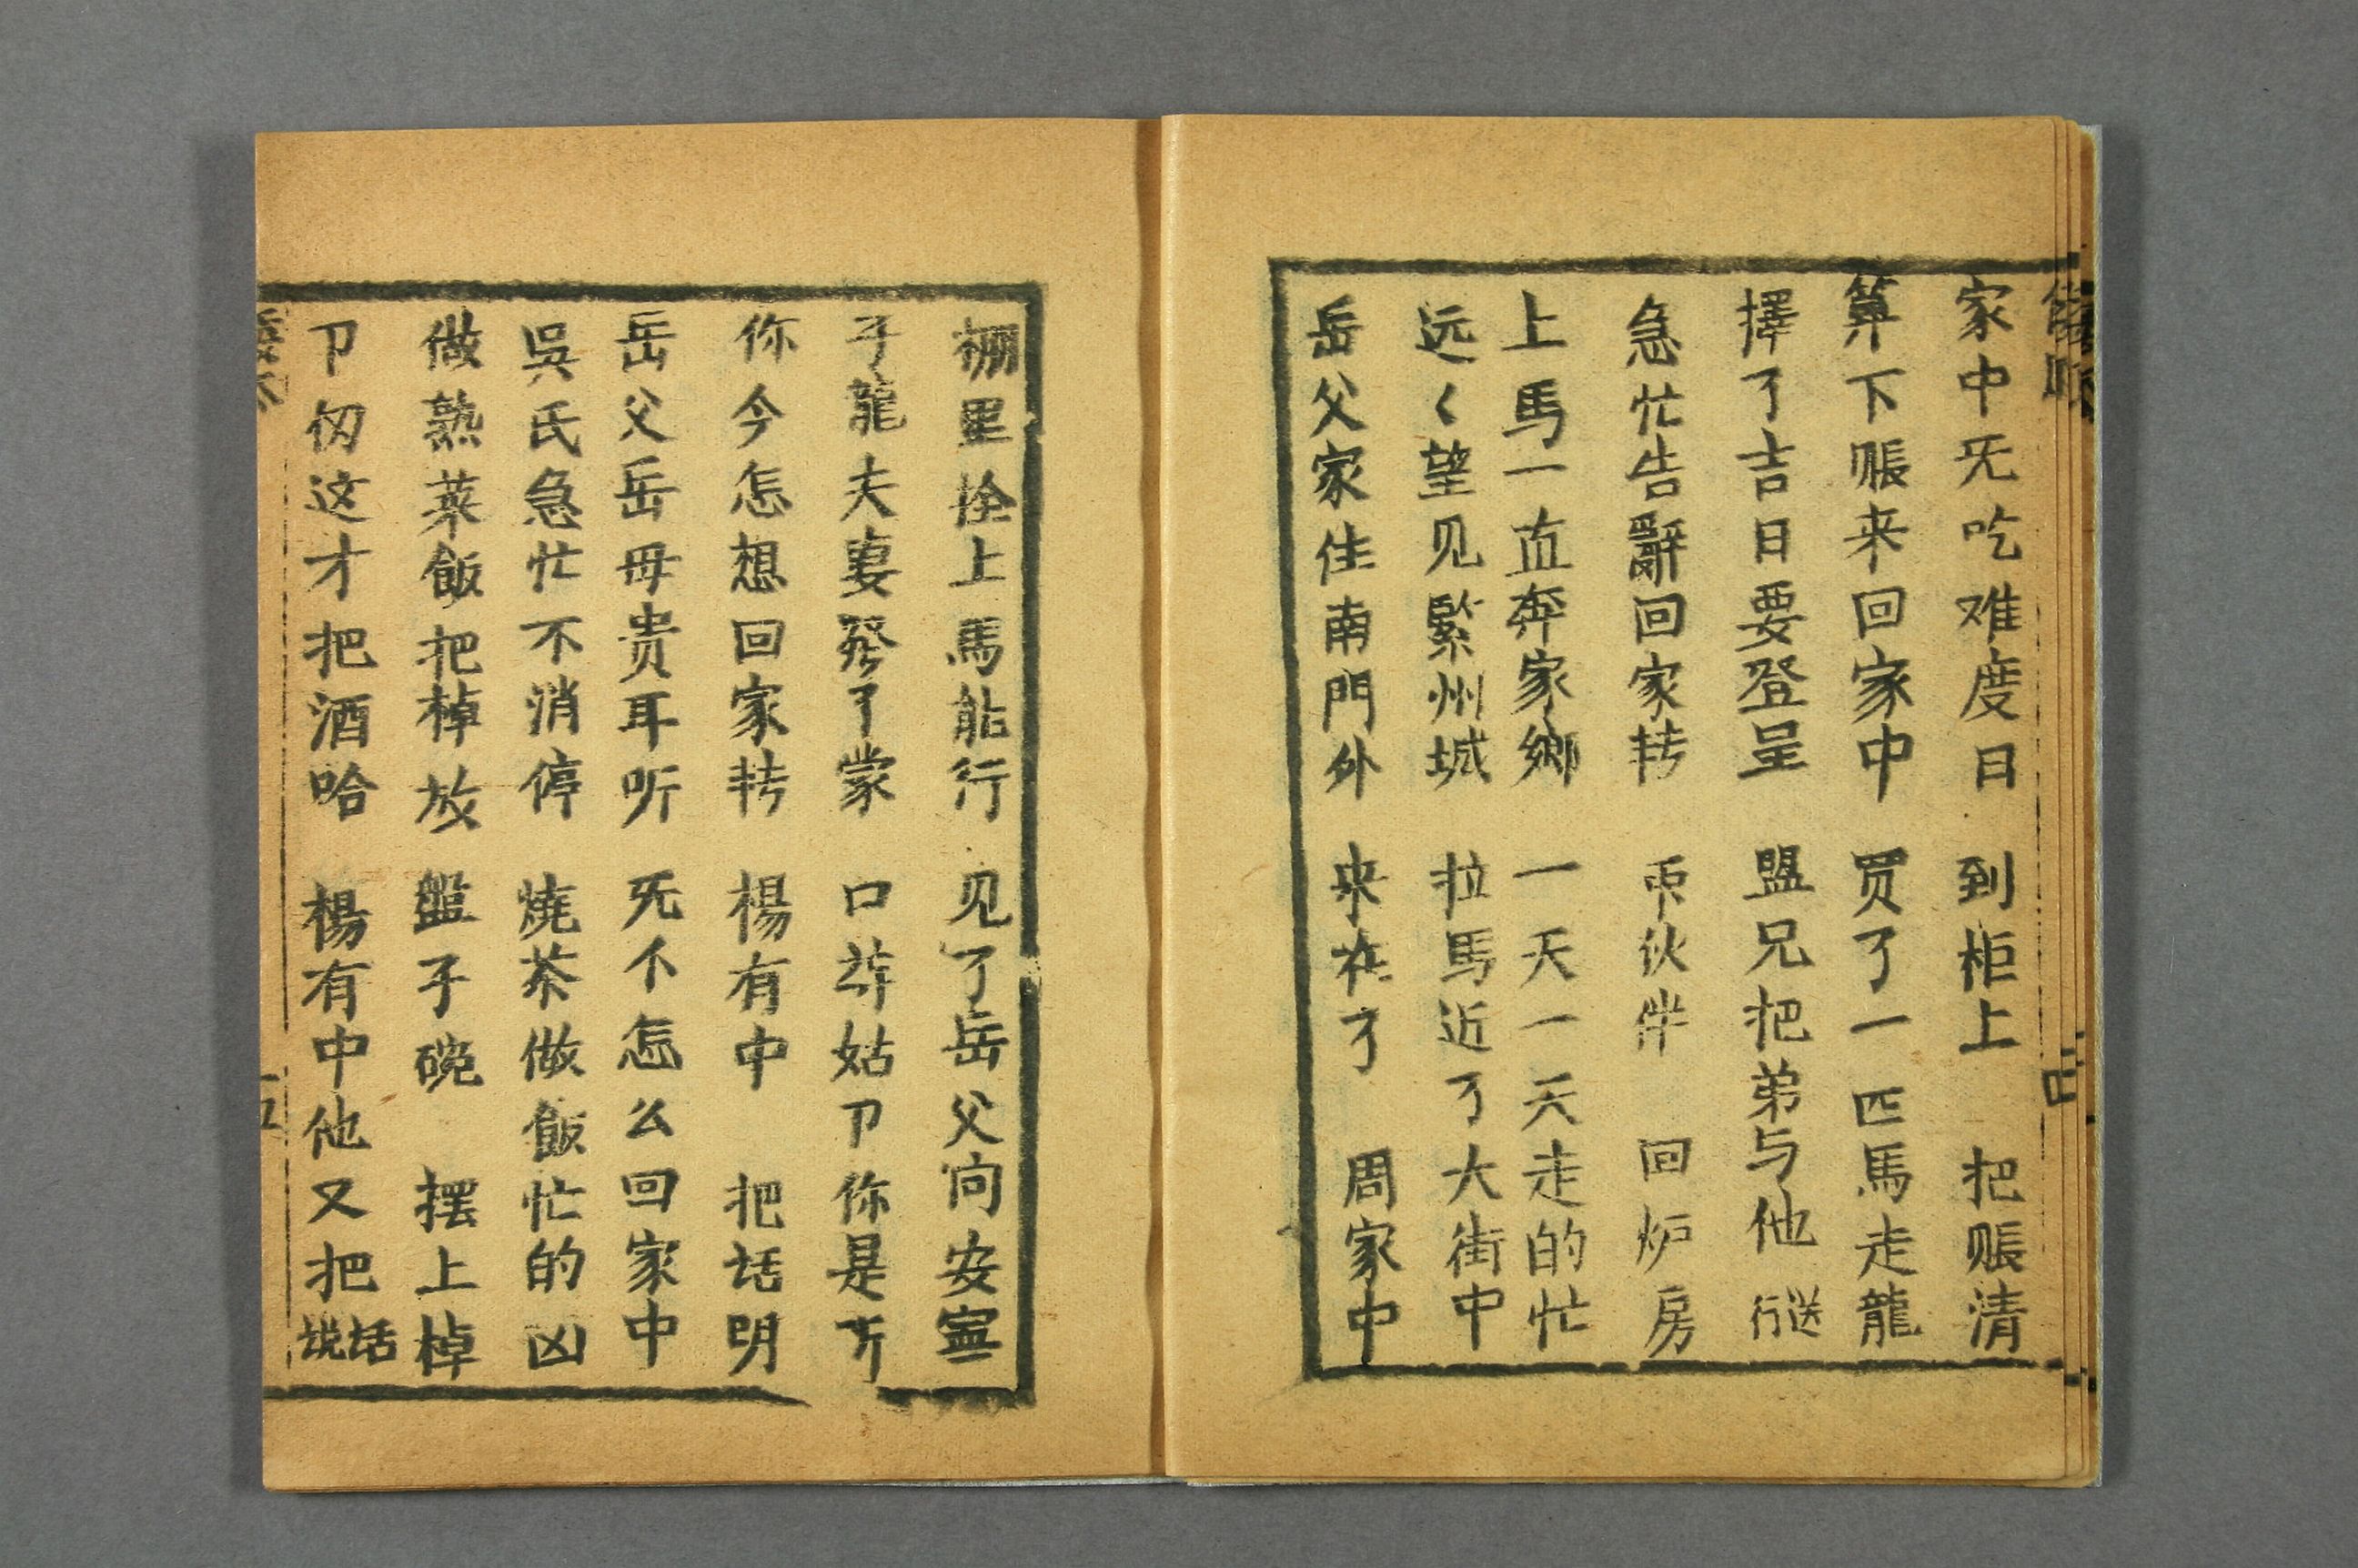 家中旡吃难度日 到柜上 把賬清
算下賬来回家中 买了一匹馬走龍
擇了吉日要登呈 盟兄把弟与他送行
急忙告辭回家转 伙伴 回炉房
上馬一直奔家鄉 一天一天走的忙
远く望见 州城 拉馬近了大街中
岳父家住南門外 来在了 周家中
棚里拴上馬能行 见了岳父问安寧
子龍夫妻發了蒙 口 姑卩你是
你今怎想回家转 楊有中 把话明
岳父岳母贵耳听 旡不怎么回家中
吳氏急忙不消停 燒茶做飯忙的凶
做熟菜飯把棹放 盤子碗 摆上棹
卩 这才把酒哈 楊有中他又把话说